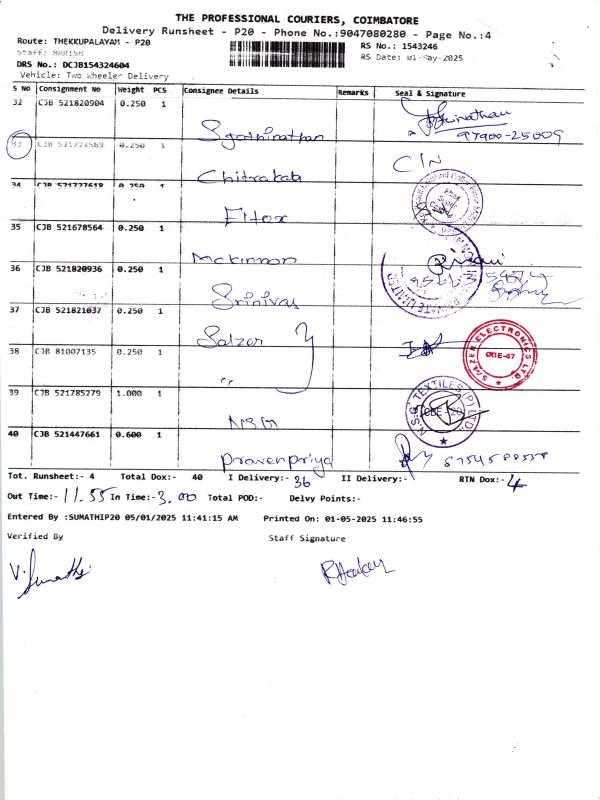 THE PROFESSIONAL COURIERS, COIMBATORE
Delivery Runsheet - P20 - Phone No.:9047080280 - Page No.:4
Route: THEKKUPALAYAM - P20 RS No.: 1543246
Staff: HARISH RS Date: 01-May-2025
DRS No.: DCJB154324604
Vehicle: Two Wheeler Delivery
S No Consignment No Weight PCS Consignee Details Remarks Seal & Signature
32 CJB 521820904 0.250 1
97900-25009
33 CJB 521727569 0.250 1 C/N
34 CJB 521727618 0.250 1
Eltex
35 CJB 521678564 0.250 1
Mckinnon
36 CJB 521820936 0.250 1
Srinivas
PRIVATE LIMITED
37 CJB 521821037 0.250 1
Salzer
38 CJB 81007135 0.250 1
〃
SALZER ELECTRONICS LTD.
CBE-47
39 CJB 521785279 1.000 1
NSG
N.S.G. TEXTILES (P) LTD.
COBE-20
40 CJB 521447661 0.600 1
Pravenpriya
Tot. Runsheet:- 4 Total Dox:- 40 I Delivery:- 36 II Delivery:- RTN Dox:- 4
Out Time:- 11.55 In Time:- 3.00 Total POD:- Delvy Points:-
Entered By :SUMATHIP20 05/01/2025 11:41:15 AM Printed On: 01-05-2025 11:46:55
Verified By Staff Signature
V. Sumathi